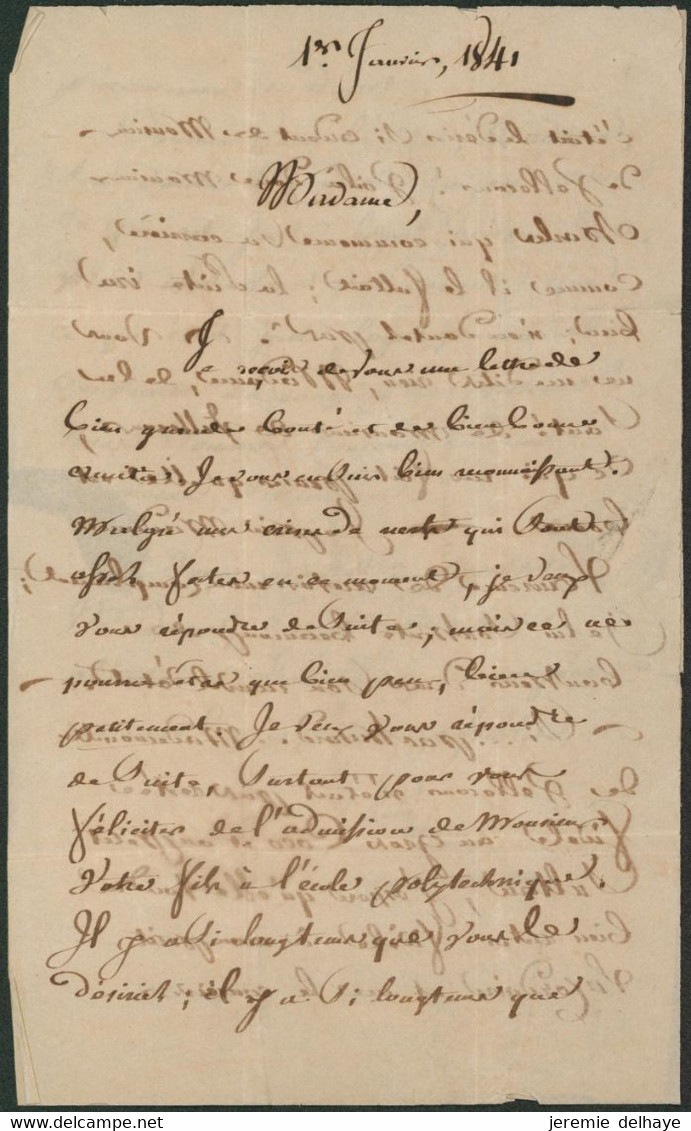 1er Janvier, 1841
Madame,
Je reçois de vous une lettre de
bien grande bonté et de bien bonne
amitié. Je vous en suis bien reconnaissant.
Malgré mes crises de nerfs qui sont
assez fortes en ce moment, je veux
vous répondre de suite; mais ce ne
pourra être que bien peu, bien
petitement. Je veux vous répondre
de suite surtout pour vous
féliciter de l'admission de Monsieur
votre fils à l'école polytechnique.
Il y a si longtems que vous le
désiriez; il y a si longtems que
jeremie delhaye